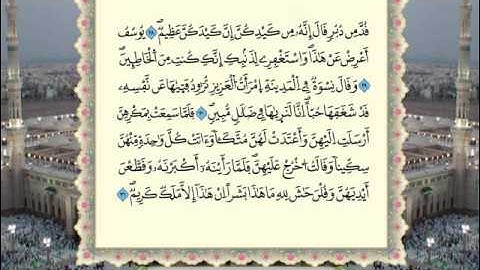 قُدَّ مِن دُبُرٍ قَالَ إِنَّهُۥ مِن كَيْدِكُنَّ إِنَّ كَيْدَكُنَّ عَظِيمٌ ٢٨ يُوسُفُ
أَعْرِضْ عَنْ هَٰذَا وَاسْتَغْفِرِي لِذَنۢبِكِ إِنَّكِ كُنتِ مِنَ الْخَاطِـِٕينَ
٢٩ وَقَالَ نِسْوَةٌ فِي الْمَدِينَةِ امْرَأَتُ الْعَزِيزِ تُرَٰوِدُ فَتَيٰهَا عَن نَّفْسِهِۦ
قَدْ شَغَفَهَا حُبًّا إِنَّا لَنَرَيٰهَا فِي ضَلَٰلٍ مُّبِينٍ ٣٠ فَلَمَّا سَمِعَتْ بِمَكْرِهِنَّ
أَرْسَلَتْ إِلَيْهِنَّ وَأَعْتَدَتْ لَهُنَّ مُتَّكَـًٔا وَءَاتَتْ كُلَّ وَٰحِدَةٍ مِّنْهُنَّ
سِكِّينًا وَقَالَتُ اخْرُجْ عَلَيْهِنَّ فَلَمَّا رَأَيْنَهُۥ أَكْبَرْنَهُۥ وَقَطَّعْنَ
أَيْدِيَهُنَّ وَقُلْنَ حَٰشَ لِلهِ مَا هَٰذَا بَشَرًا إِنْ هَٰذَا إِلَّا مَلَكٌ كَرِيمٌ ٣١